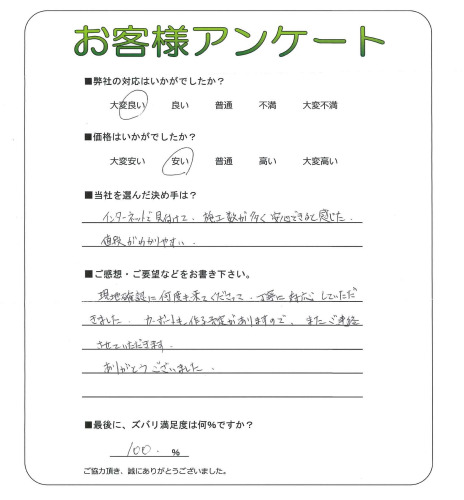 お客様アンケート
■弊社の対応はいかがでしたか？
大変良い 良い 普通 不満 大変不満
■価格はいかがでしたか？
大変安い 安い 普通 高い 大変高い
■当社を選んだ決め手は？
インターネットで見付けて、施工数が多く安心できると感じた。
値段がわかりやすい。
■ご感想・ご要望などをお書き下さい。
現地確認に何度も来てくださって、丁寧に対応していただ
きました。カーポートも作る予定がありますので、またご連絡
させていただきます。
ありがとうございました。
■最後に、ズバリ満足度は何％ですか？
100 ％
ご協力頂き、誠にありがとうございました。